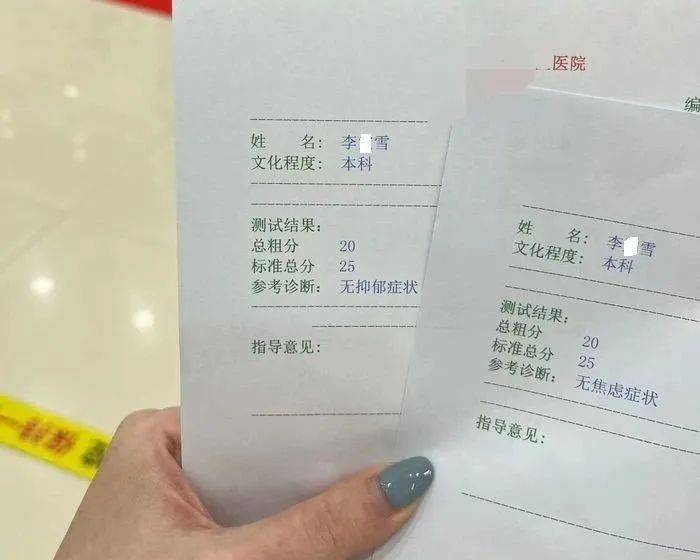 医院
编
姓 名: 李 雪
文化程度: 本科
测试结果:
总粗分 20
标准总分 25
参考诊断: 无抑郁症状
指导意见:
姓 名: 李 雪
文化程度: 本科
测试结果:
总粗分 20
标准总分 25
参考诊断: 无焦虑症状
指导意见: